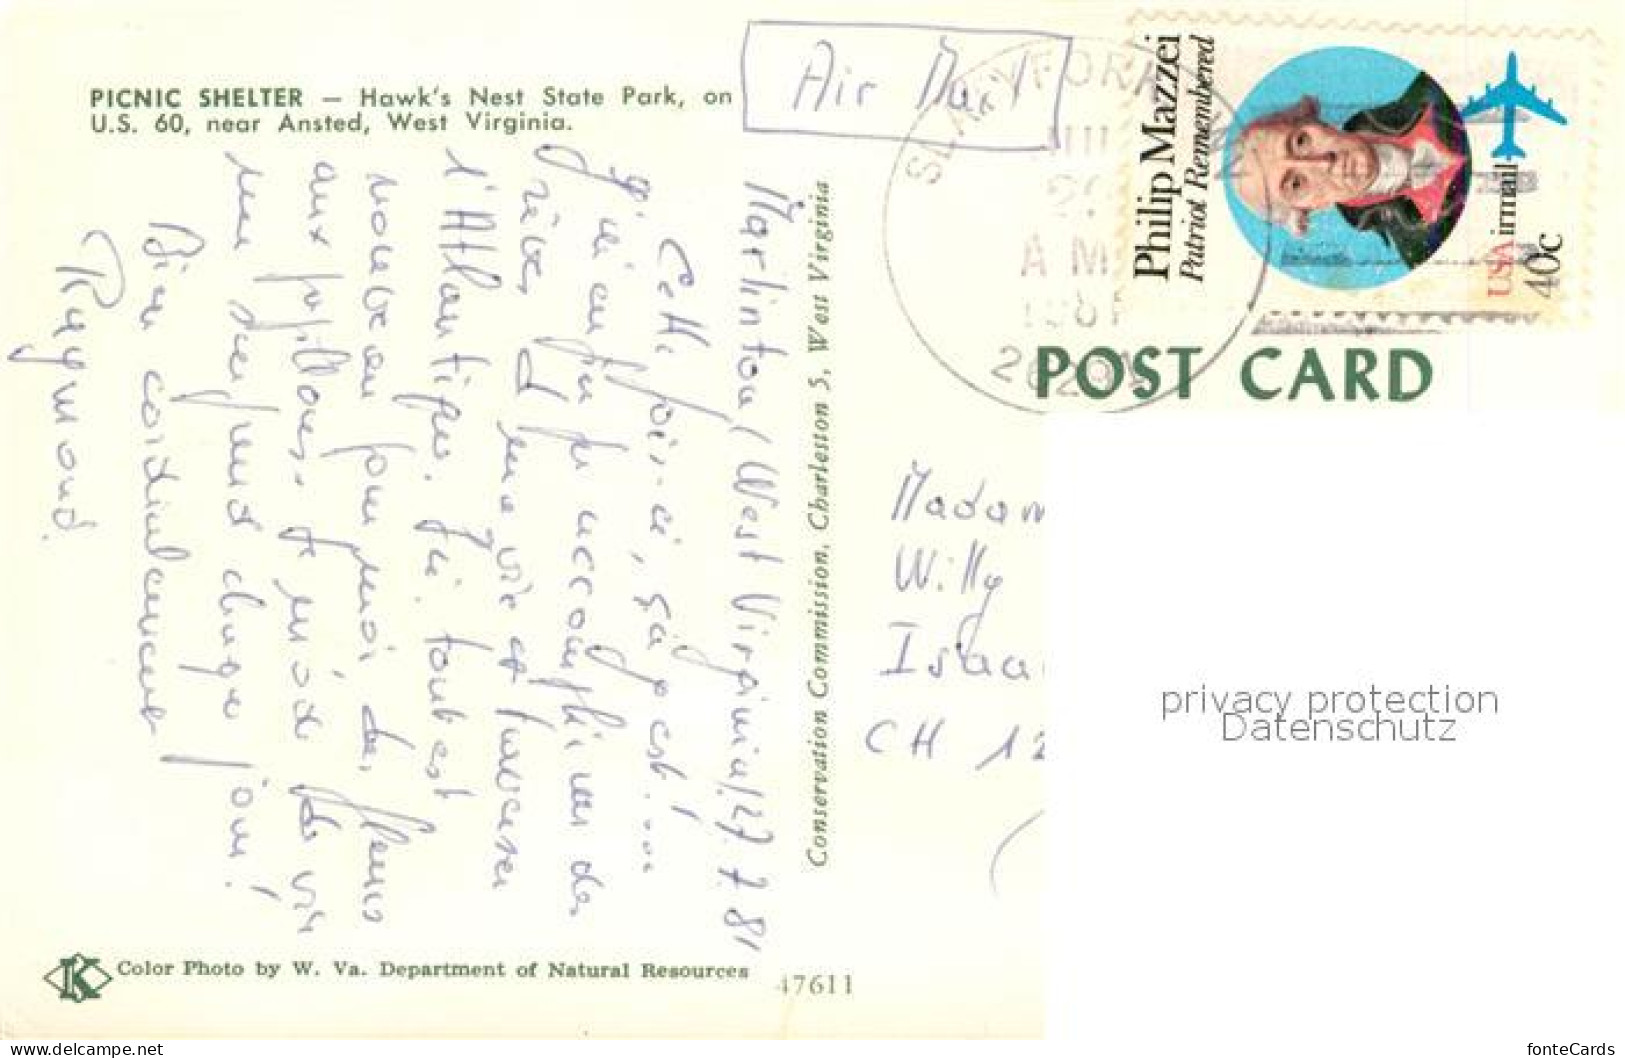 PICNIC SHELTER — Hawk's Nest State Park, on
U.S. 60, near Ansted, West Virginia.
Air Mail
AM
Philip Mazzei
Patriot Remembered
USAirmail
40c
POST CARD
Marlinton, West Virginia, 27.7.81
Cette fois-ci, ça y est! ...
J'ai enfin pu accomplir un des
rêves de ma vie et traverser
l'Atlantique. Ici tout est
nouveau pour moi des fleurs
aux papillons. Je
me surprend chaque jour!
Bien cordialement
Raymond.
Conservation Commission, Charleston 5, West Virginia
Madam
Willy
Isaa
CH 12
privacy protection
Datenschutz
K Color Photo by W. Va. Department of Natural Resources
47611
www.delcampe.net
fonteCards